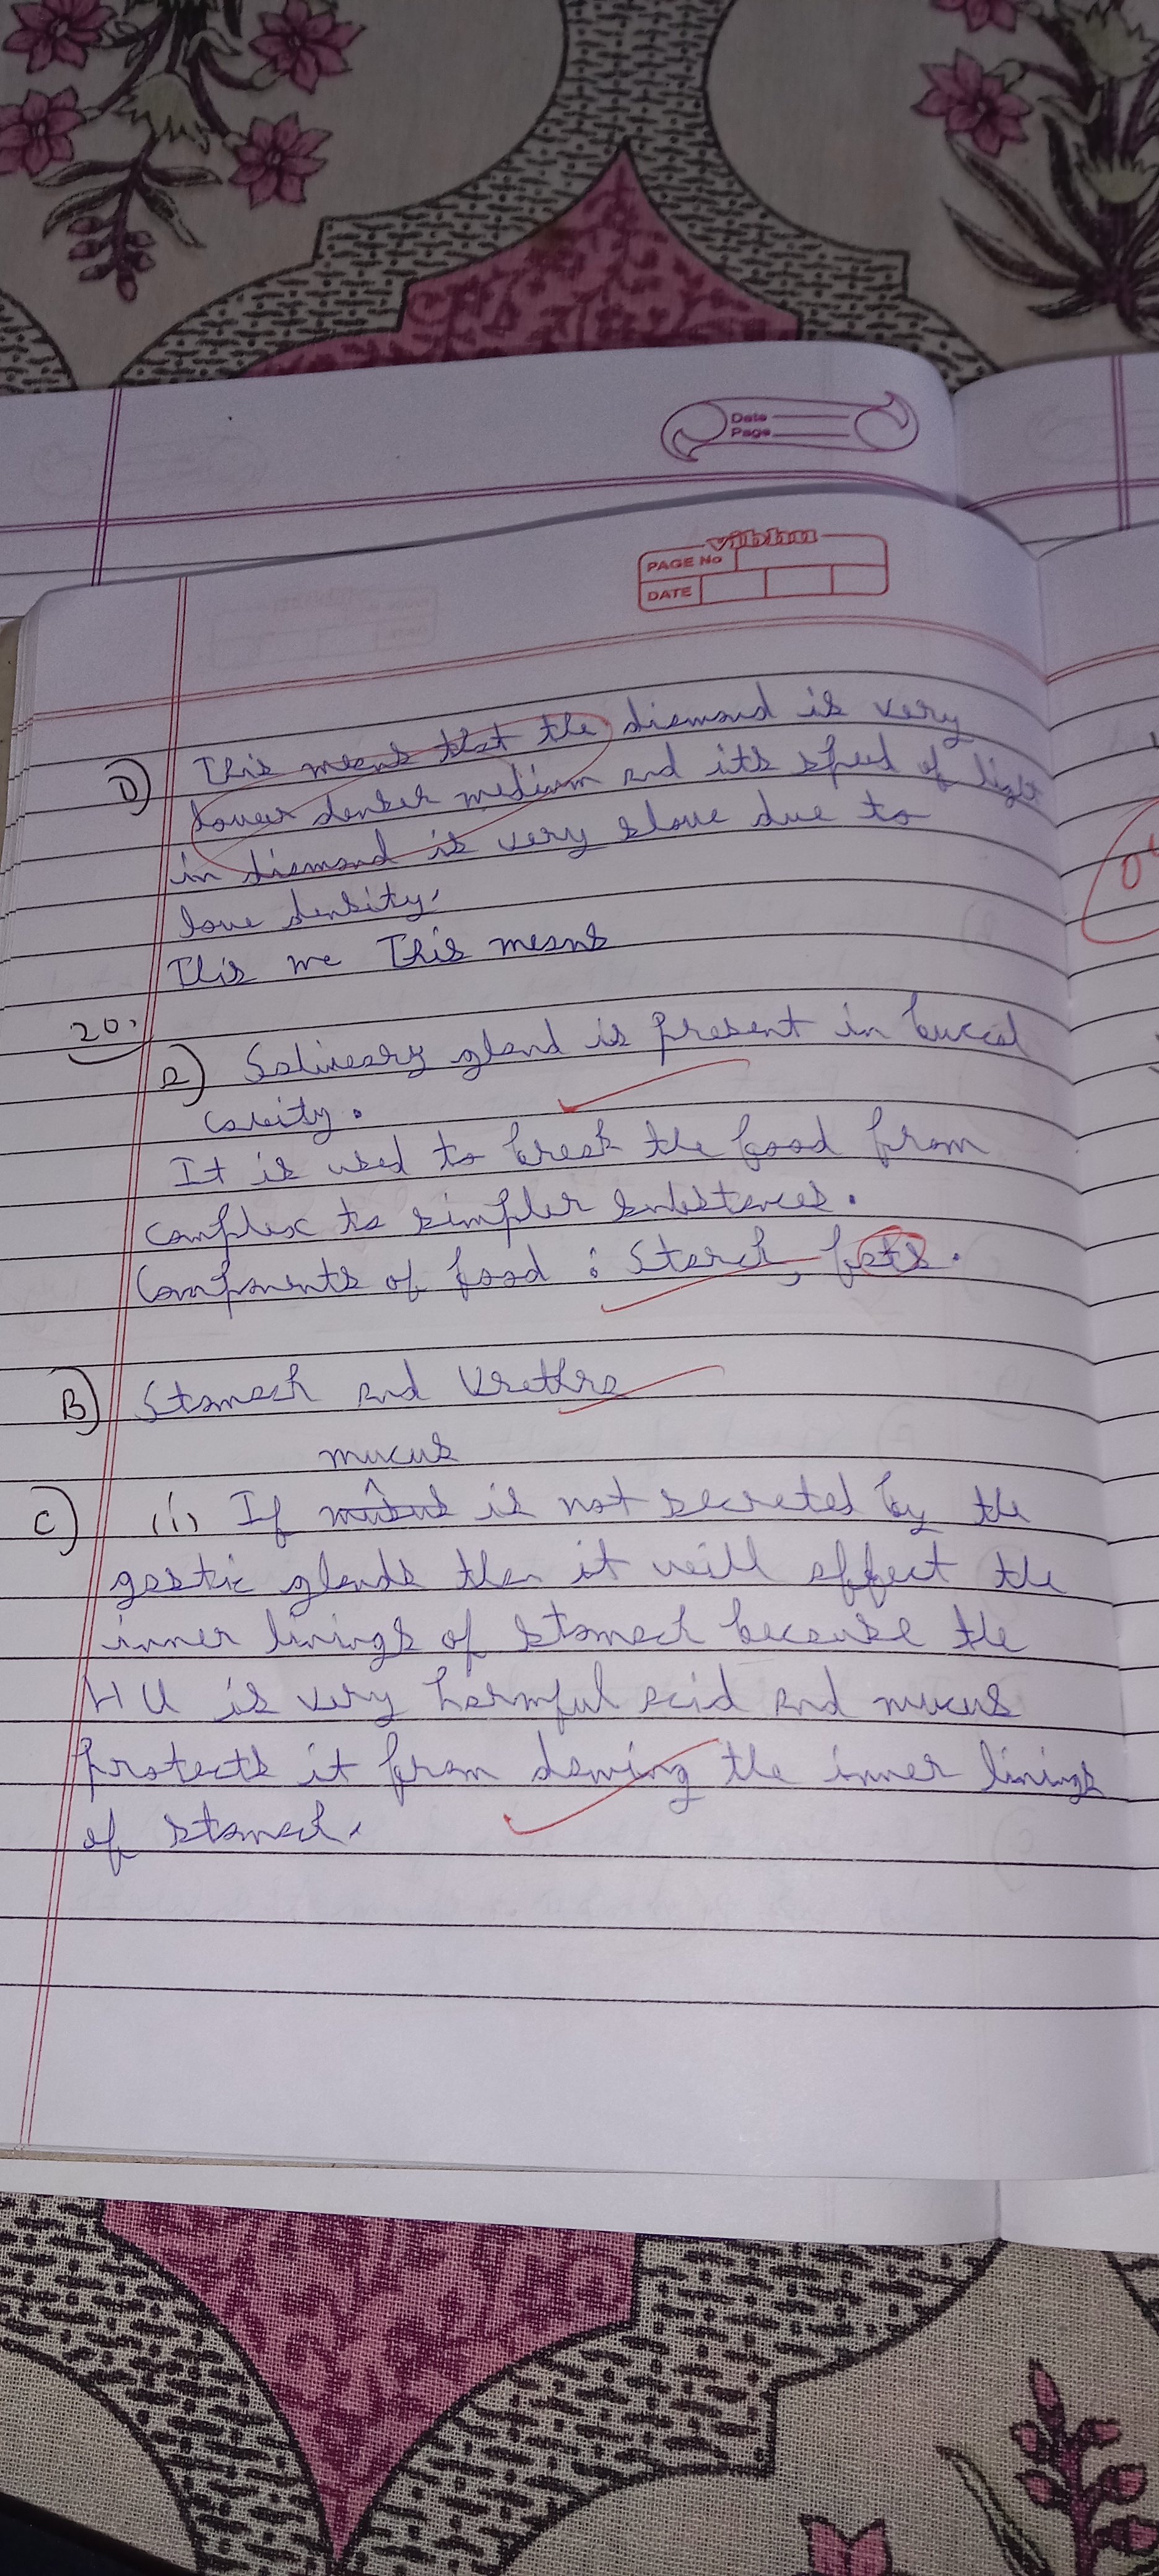 Date
Page
vibhu
PAGE No
DATE
D) This means that the diamond is very
lower denser medium and its speed of light
in diamond is very slowe due to
lowe density.
This me This means
20.
a) Saliveary gland is present in buccal
cavity.
It is used to break the food from
complex to simpler substances.
Components of food : Starch, fats.
B) Stomach and Urethra
mucus
C) (i) If is not secreted by the
gastic glands then it will affect the
inner linings of stomach because the
HCl is very harmful acid and mucus
protects it from daming the inner linings
of stomach.